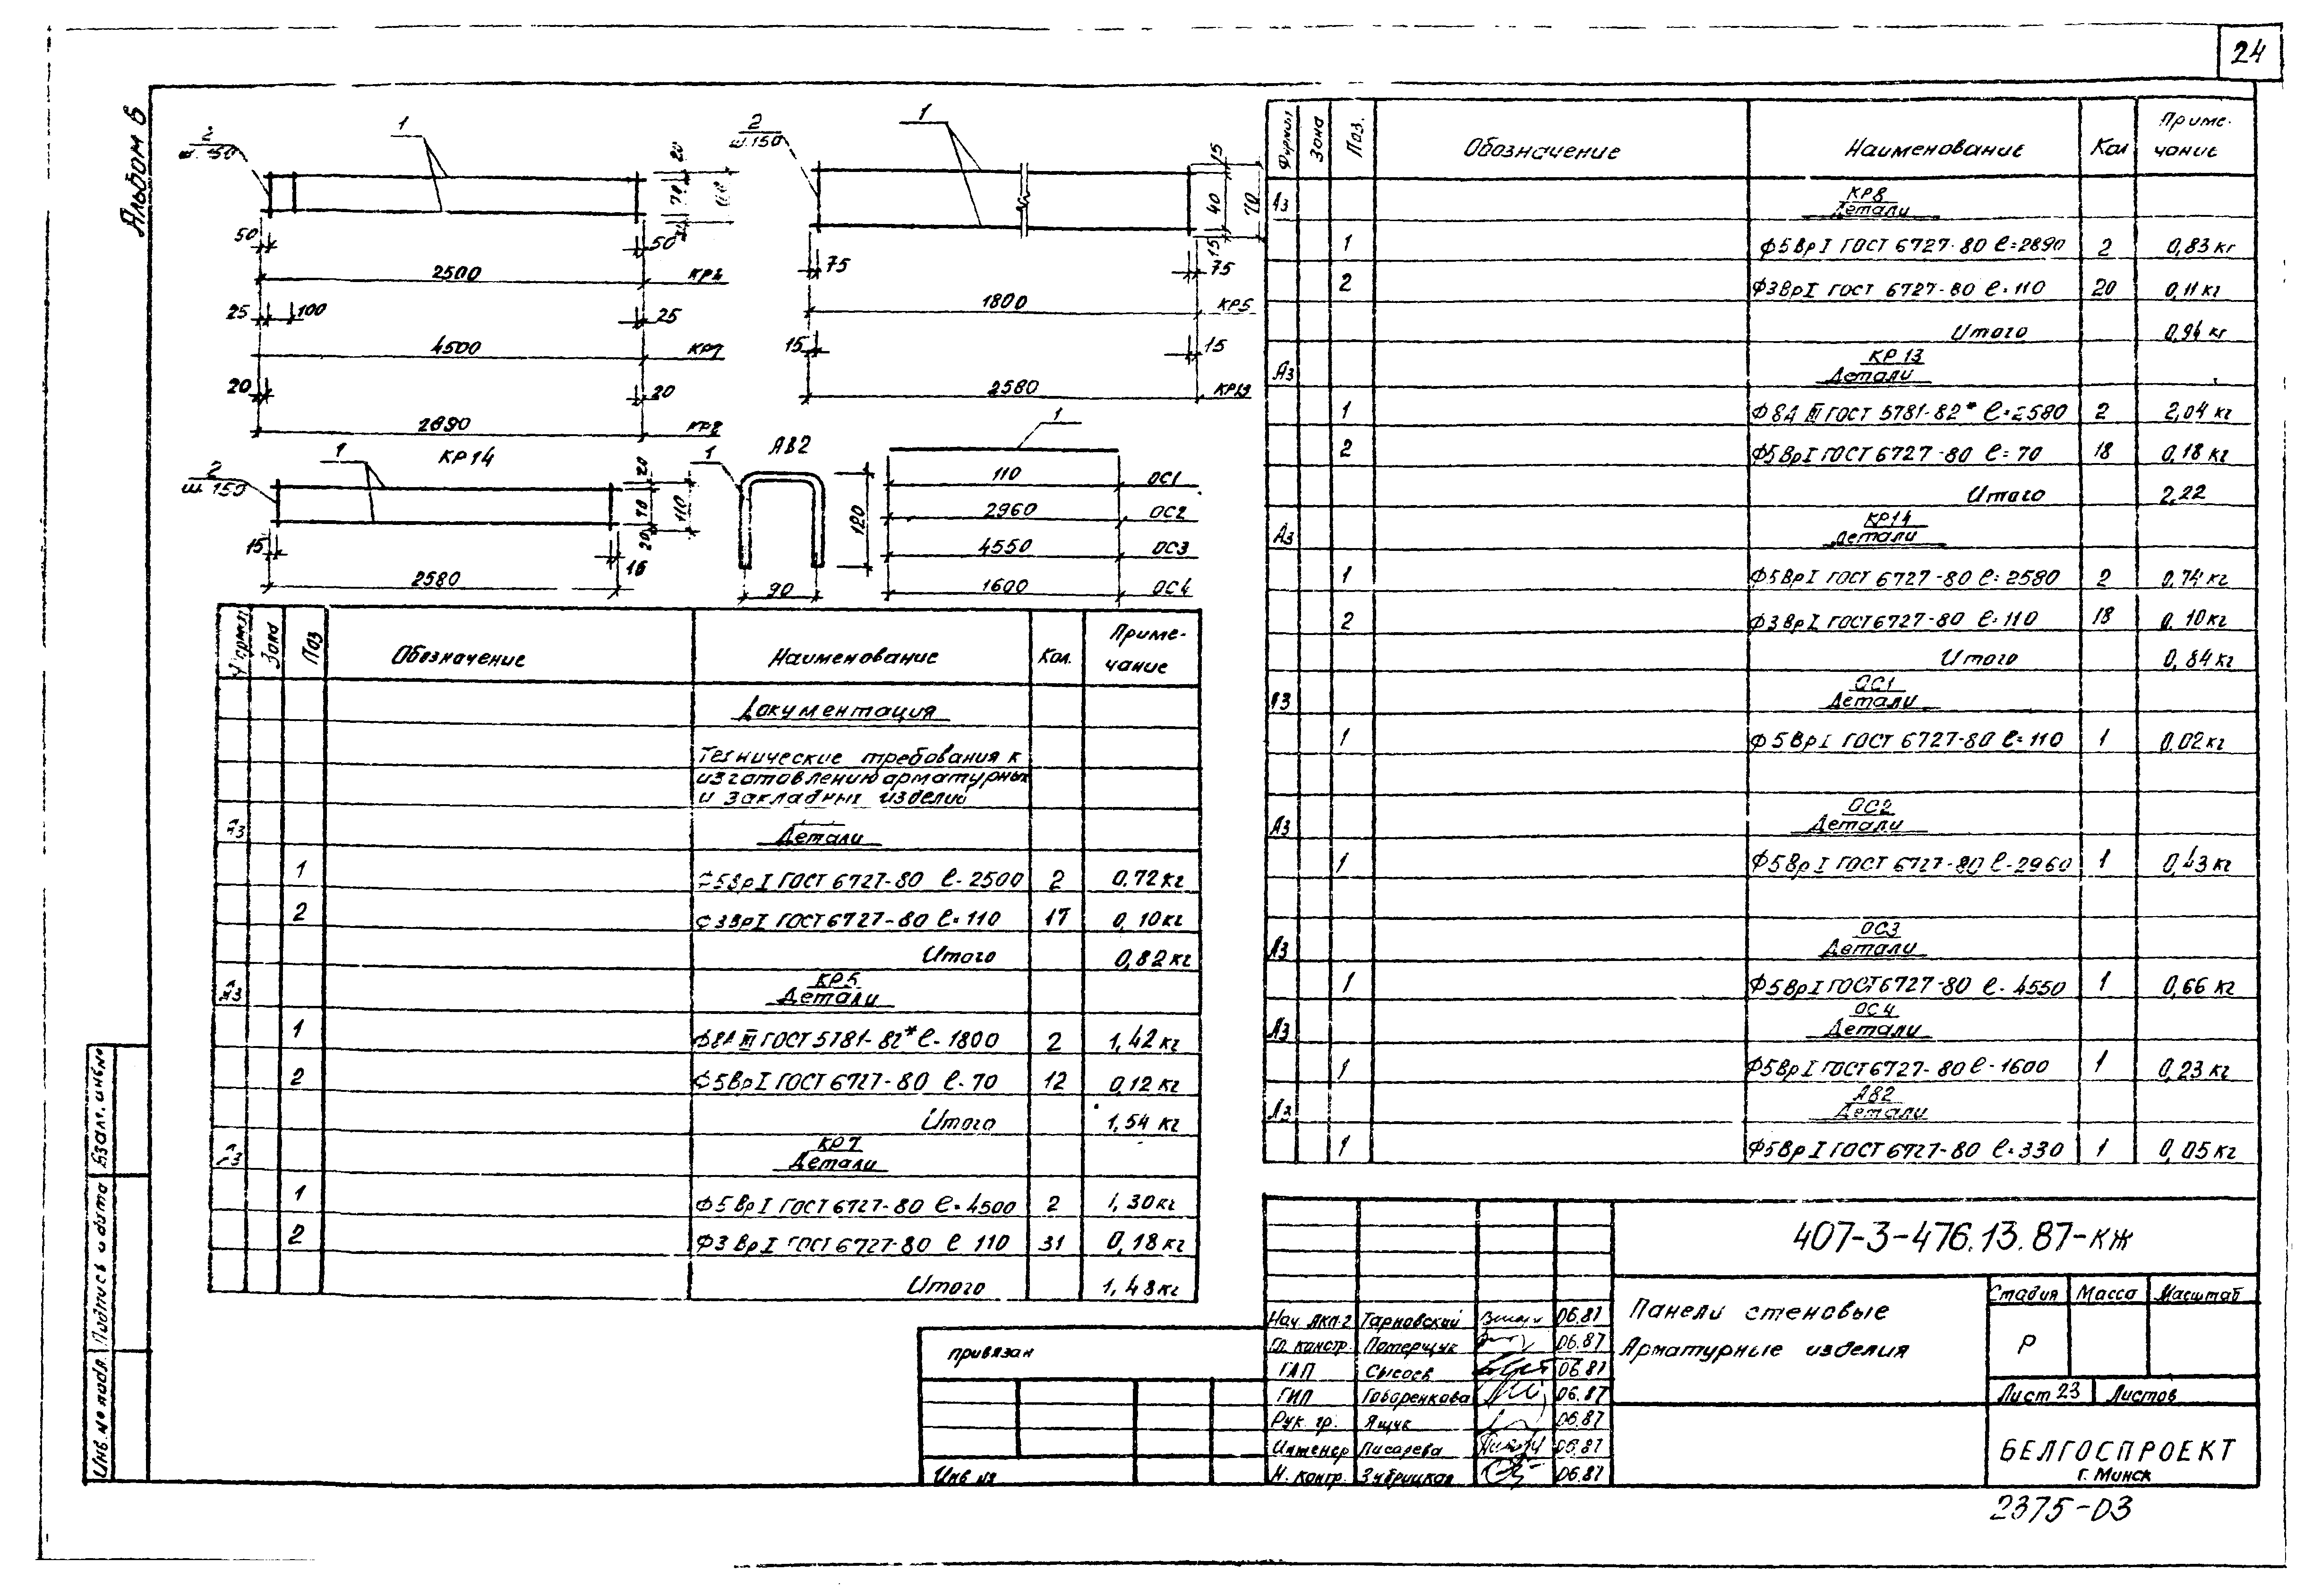 24
Альбом 6
2
ш. 150
1
20
70
50
50
2500
25
100
25
4500
КР7
20
20
2890
КР8
2
ш. 150
1
15
40
15
70
75
75
1800
КР5
15
15
2580
КР13
КР14
2
ш. 150
1
20
70
20
110
15
15
2580
АВ2
1
120
90
1
110 ОС1
2960 ОС2
4550 ОС3
1600 ОС4
Формат Зона Поз Обозначение Наименование Кол. Приме-
чание
Документация
Технические требования к
изготовлению арматурных
и закладных изделий
А3 Детали
1 Ф5ВрI ГОСТ 6727-80 ℓ-2500 2 0,72 кг
2 Ф3ВрI ГОСТ 6727-80 ℓ=110 17 0,10 кг
Итого 0,82 кг
КР5
А3 Детали
1 Ф8АIII ГОСТ 5781-82* ℓ-1800 2 1,42 кг
2 Ф5ВрI ГОСТ 6727-80 ℓ-70 12 0,12 кг
Итого 1,54 кг
КР7
А3 Детали
1 Ф5ВрI ГОСТ 6727-80 ℓ=4500 2 1,30 кг
2 Ф3ВрI ГОСТ 6727-80 ℓ 110 31 0,18 кг
Итого 1,48 кг
Формат Зона Поз. Обозначение Наименование Кол Приме-
чание
КР8
А3 Детали
1 Ф5ВрI ГОСТ 6727-80 ℓ=2890 2 0,83 кг
2 Ф3ВрI ГОСТ 6727-80 ℓ=110 20 0,11 кг
Итого 0,94 кг
КР13
А3 Детали
1 Ф8АIII ГОСТ 5781-82* ℓ=2580 2 2,04 кг
2 Ф5ВрI ГОСТ 6727-80 ℓ=70 18 0,18 кг
Итого 2,22
КР14
А3 Детали
1 Ф5ВрI ГОСТ 6727-80 ℓ=2580 2 0,74 кг
2 Ф3ВрI ГОСТ 6727-80 ℓ=110 18 0,10 кг
Итого 0,84 кг
ОС1
А3 Детали
1 Ф5ВрI ГОСТ 6727-80 ℓ=110 1 0,02 кг
ОС2
А3 Детали
1 Ф5ВрI ГОСТ 6727-80 ℓ-2960 1 0,43 кг
ОС3
А3 Детали
1 Ф5ВрI ГОСТ 6727-80 ℓ-4550 1 0,66 кг
ОС4
А3 Детали
1 Ф5ВрI ГОСТ 6727-80 ℓ-1600 1 0,23 кг
АВ2
А3 Детали
1 Ф5ВрI ГОСТ 6727-80 ℓ=330 1 0,05 кг
407-3-476.13.87-КЖ
Панели стеновые
Арматурные изделия
Стадия Масса Масштаб
Р
Лист 23 Листов
БЕЛГОСПРОЕКТ
г. Минск
Нач. АКП-2 Тарновский 06.87
Гл. констр. Потерщук 06.87
ГАП Сысоев 06.87
ГИП Говоренкова 06.87
Рук. гр. Ящук 06.87
Инженер Писарева 06.87
Н. контр. Зубрицкая 06.87
привязан
Инв №
Инв. № подл. Подпись и дата Взам. инв. №
2375-03